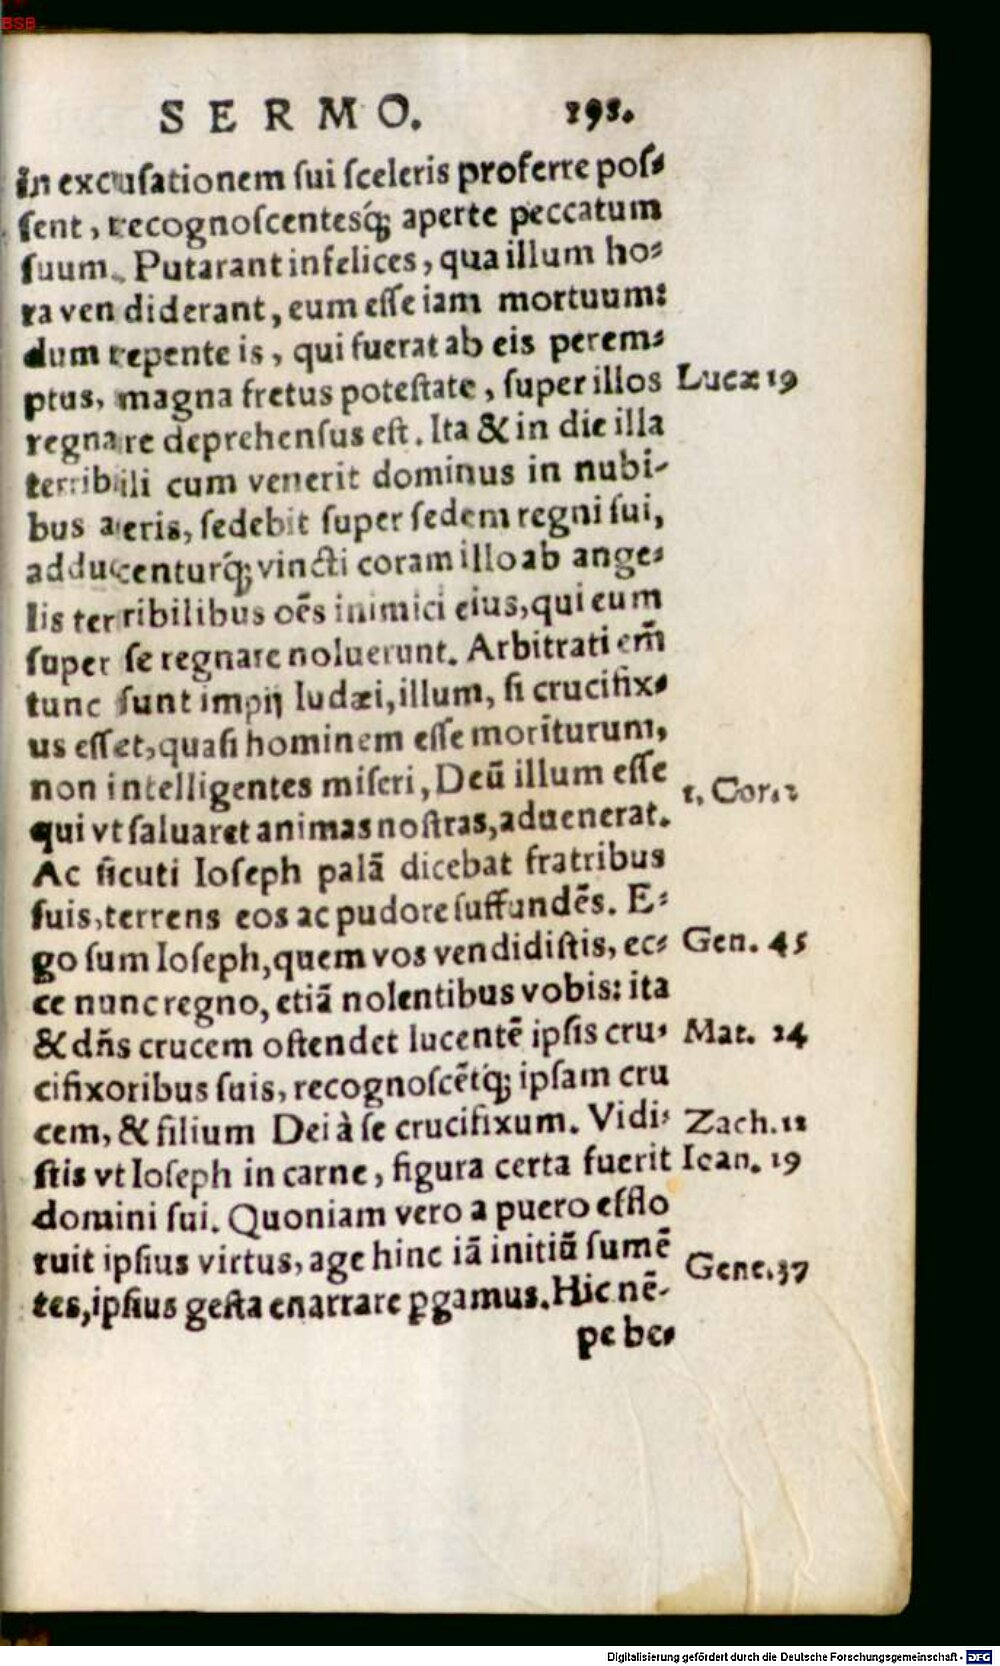 BSB
SERMO. 195.
in excusationem sui sceleris proferre pos-
sent, recognoscentesq́; aperte peccatum
suum. Putarant infelices, qua illum ho-
ra vendiderant, eum esse iam mortuum:
dum repente is, qui fuerat ab eis perem-
ptus, magna fretus potestate, super illos Lucæ 19
regnare deprehensus est. Ita & in die illa
terribili cum venerit dominus in nubi-
bus aeris, sedebit super sedem regni sui,
adducenturq́; vincti coram illo ab ange-
lis terribilibus oẽs inimici eius, qui eum
super se regnare noluerunt. Arbitrati em̃
tunc sunt impij Iudæi, illum, si crucifix-
us esset, quasi hominem esse moriturum,
non intelligentes miseri, Deũ illum esse
1. Cor. 2
qui vt saluaret animas nostras, aduenerat.
Ac sicuti Ioseph palã dicebat fratribus
suis, terrens eos ac pudore suffundẽs. E-
go sum Ioseph, quem vos vendidistis, ec- Gen. 45
ce nunc regno, etiã nolentibus vobis: ita
& dñs crucem ostendet lucentẽ ipsis cru- Mat. 24
cifixoribus suis, recognoscẽtq́; ipsam cru
cem, & filium Dei à se crucifixum. Vidi- Zach. 12
stis vt Ioseph in carne, figura certa fuerit Ioan. 19
domini sui. Quoniam vero a puero efflo
ruit ipsius virtus, age hinc iã initiũ sumẽ
Gene. 37
tes, ipsius gesta enarrare ꝑgamus. Hic nẽ-
pe be-
Digitalisierung gefördert durch die Deutsche Forschungsgemeinschaft - DFG